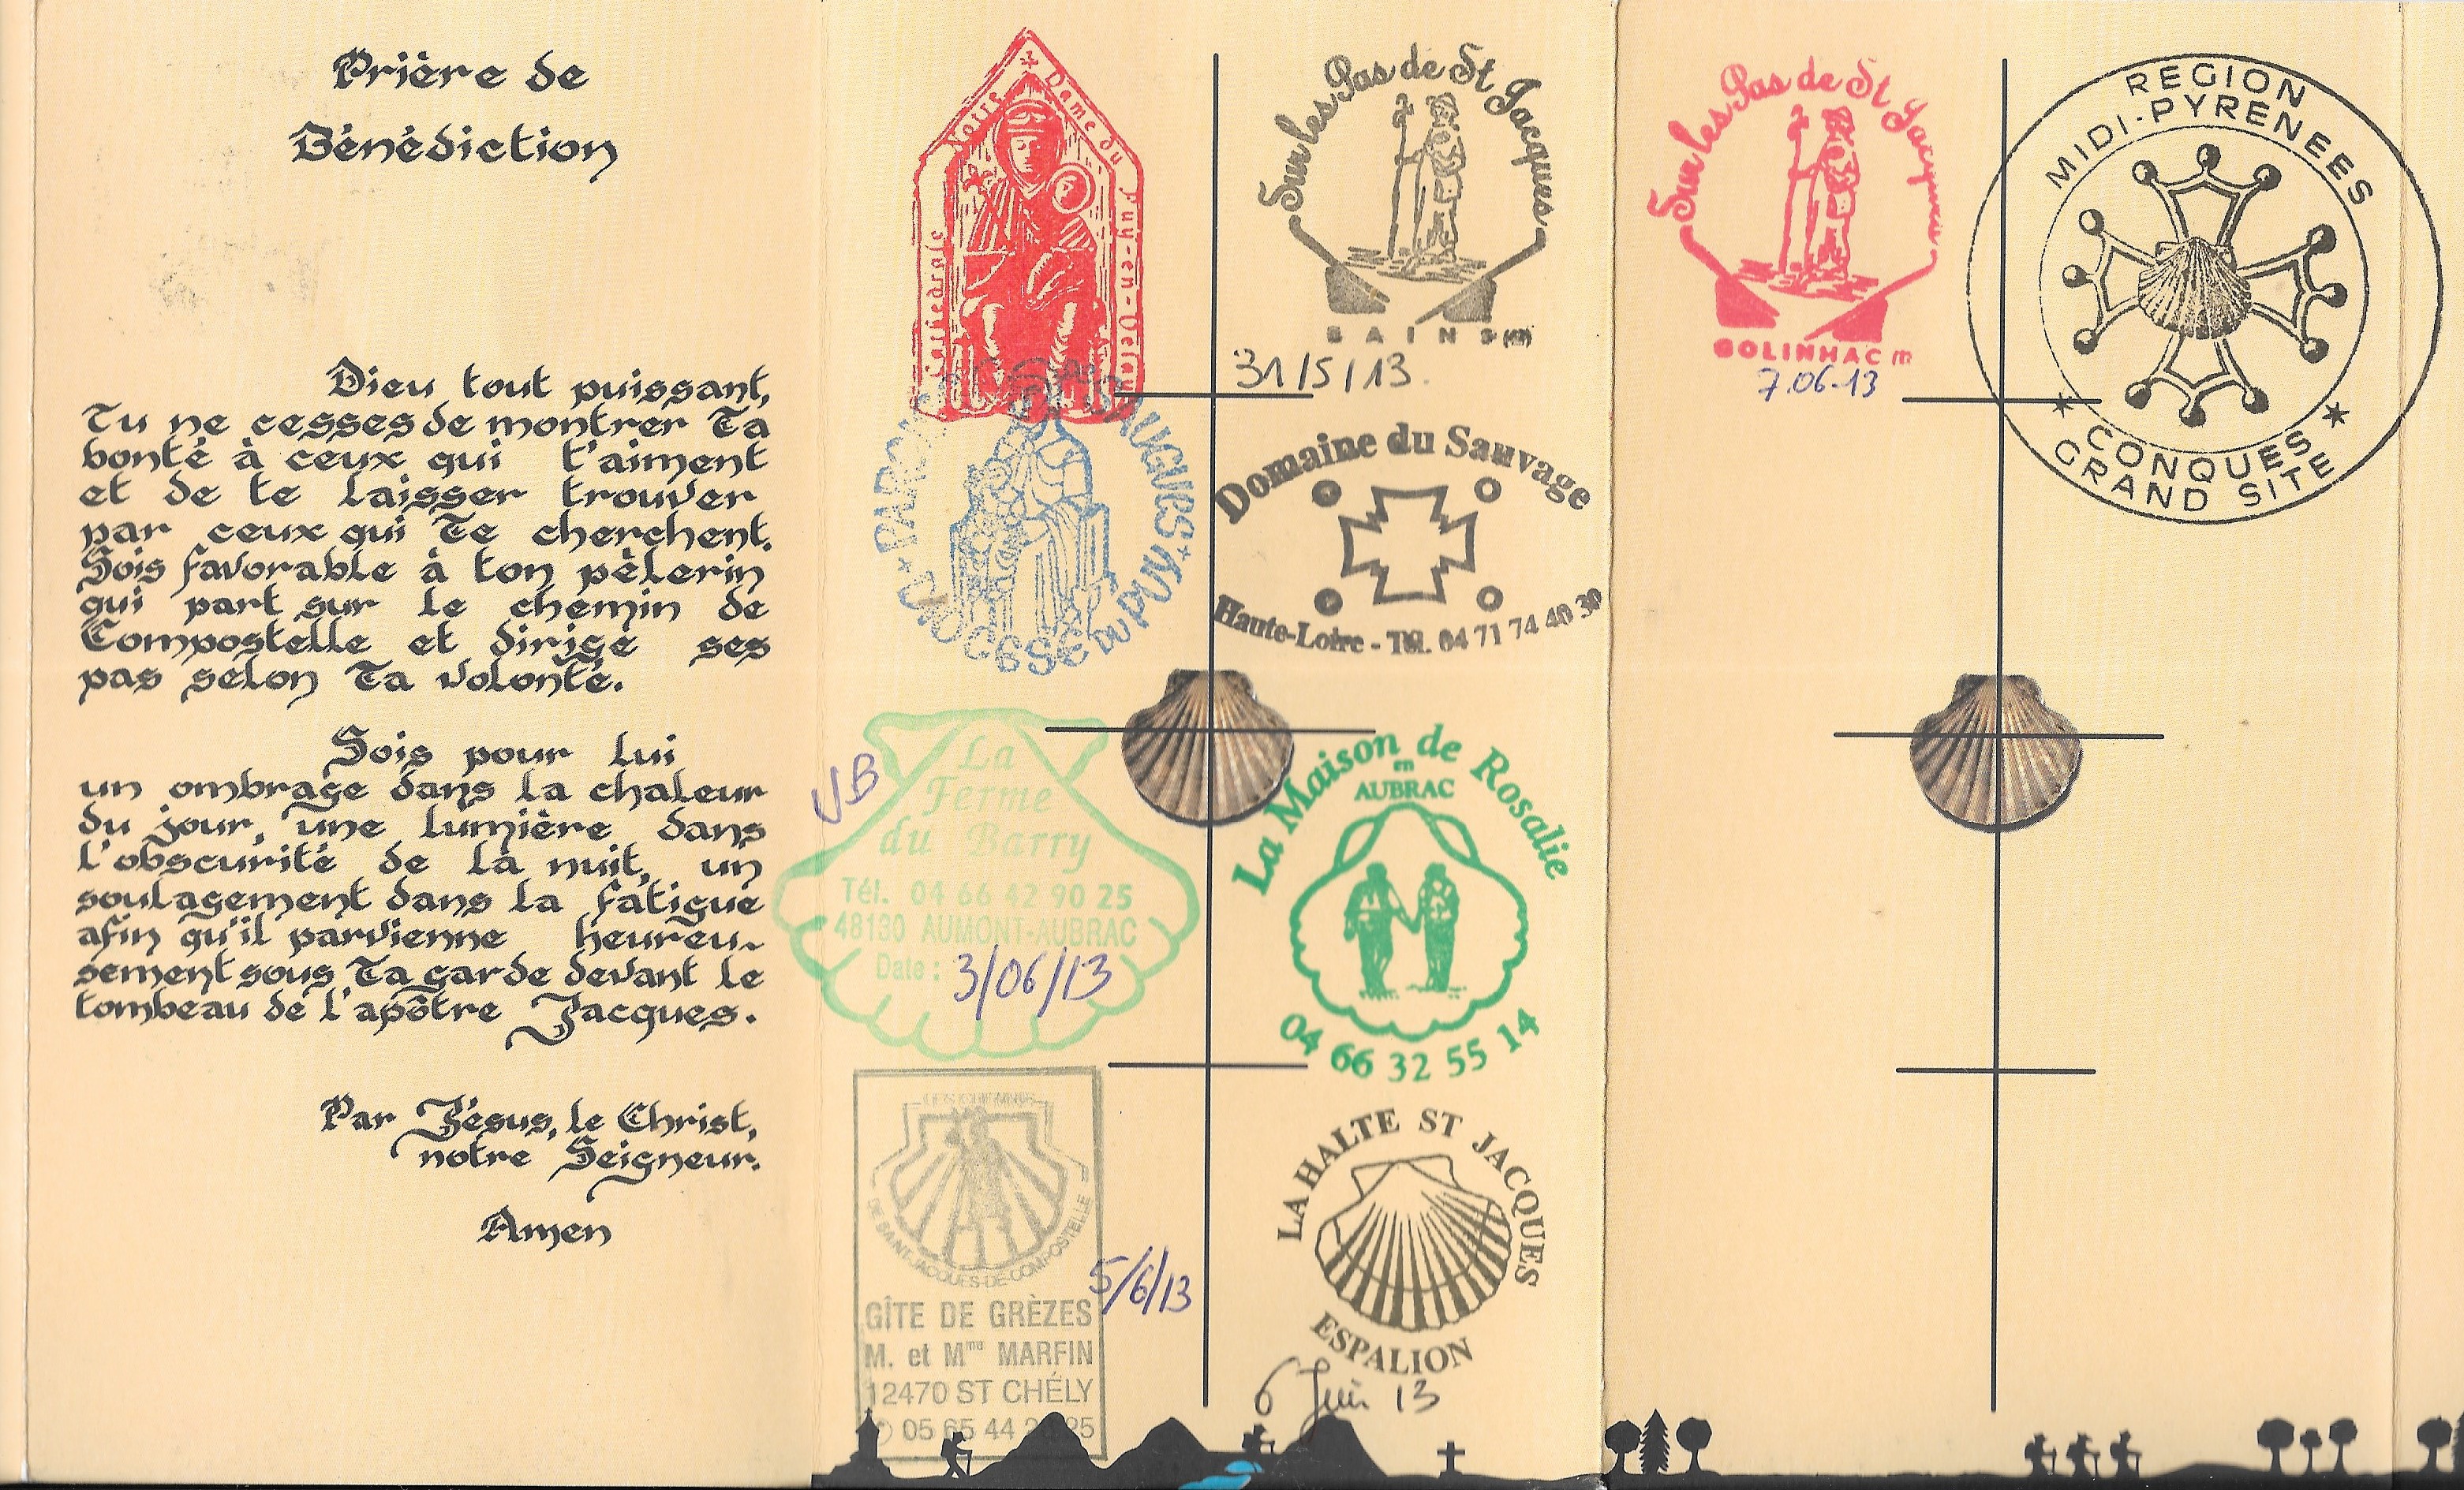 Prière de
Bénédiction
Dieu tout puissant,
Tu ne cesses de montrer Ta
bonté à ceux qui t'aiment
et de te laisser trouver
par ceux qui Te cherchent.
Sois favorable à ton pèlerin
qui part sur le chemin de
Compostelle et dirige ses
pas selon Ta volonté.
Sois pour lui
un ombrage dans la chaleur
du jour, une lumière dans
l'obscurité de la nuit, un
soulagement dans la fatigue
afin qu'il parvienne heureu-
sement sous Ta garde devant le
tombeau de l'apôtre Jacques.
Par Jésus, le Christ,
notre Seigneur.
Amen
Notre Dame du Puy-en-Velay
Cathédrale
Sur les Pas de St Jacques
BAINS
31/5/13.
SAUGUES
DIOCESE DU PUY
Domaine du Sauvage
Haute-Loire - Tél. 04 71 74 40 30
VB
La
Ferme
du Barry
Tél. 04 66 42 90 25
48130 AUMONT-AUBRAC
Date : 3/06/13
La Maison de Rosalie
en
AUBRAC
04 66 32 55 14
LES CHEMINS
DE SAINT-JACQUES-DE-COMPOSTELLE
GÎTE DE GRÈZES
M. et Mme MARFIN
12470 ST CHÉLY
05 65 44
5/6/13
LA HALTE ST JACQUES
ESPALION
6 Juin 13
Sur les Pas de St Jacques
GOLINHAC
7.06-13
REGION
MIDI-PYRENEES
* CONQUES *
GRAND SITE